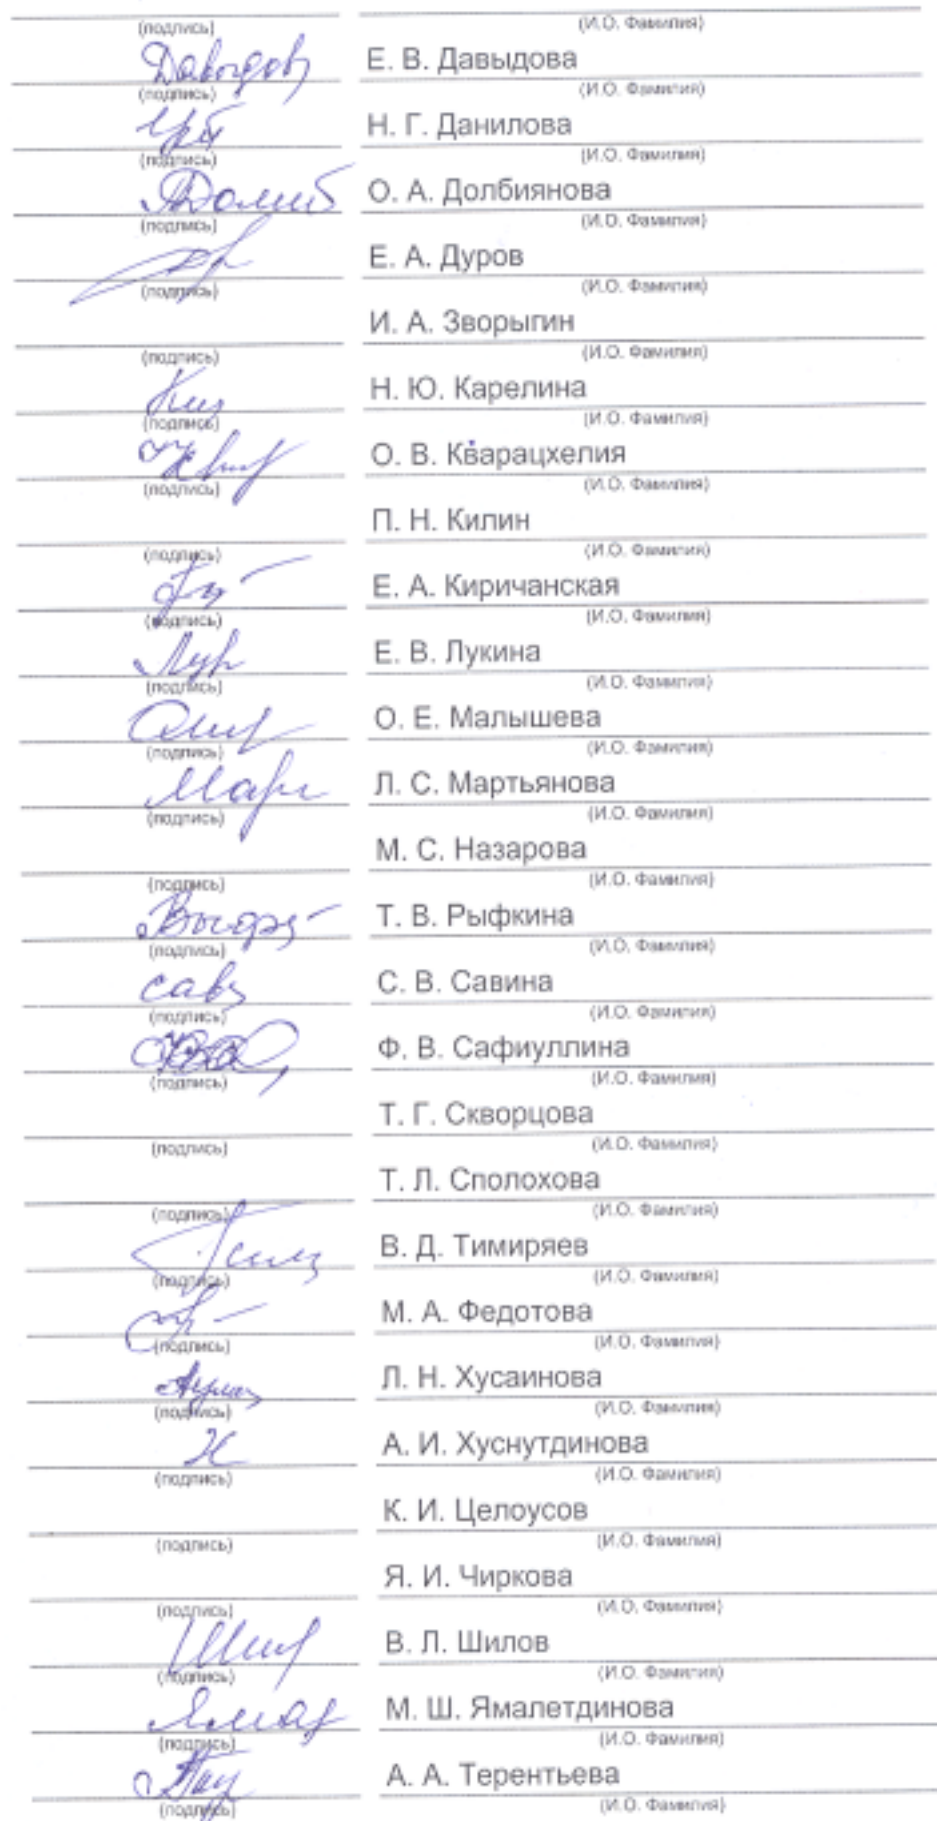 (подпись) (И.О. Фамилия)
Давыдов Е. В. Давыдова
(подпись) (И.О. Фамилия)
Н. Г. Данилова
(подпись) (И.О. Фамилия)
О. А. Долбиянова
(подпись) (И.О. Фамилия)
Е. А. Дуров
(подпись) (И.О. Фамилия)
И. А. Зворыгин
(подпись) (И.О. Фамилия)
Н. Ю. Карелина
(подпись) (И.О. Фамилия)
О. В. Кварацхелия
(подпись) (И.О. Фамилия)
П. Н. Килин
(подпись) (И.О. Фамилия)
Е. А. Киричанская
(подпись) (И.О. Фамилия)
Е. В. Лукина
(подпись) (И.О. Фамилия)
О. Е. Малышева
(подпись) (И.О. Фамилия)
Л. С. Мартьянова
(подпись) (И.О. Фамилия)
М. С. Назарова
(подпись) (И.О. Фамилия)
Т. В. Рыфкина
(подпись) (И.О. Фамилия)
С. В. Савина
(подпись) (И.О. Фамилия)
Ф. В. Сафиуллина
(подпись) (И.О. Фамилия)
Т. Г. Скворцова
(подпись) (И.О. Фамилия)
Т. Л. Сполохова
(подпись) (И.О. Фамилия)
В. Д. Тимиряев
(подпись) (И.О. Фамилия)
М. А. Федотова
(подпись) (И.О. Фамилия)
Л. Н. Хусаинова
(подпись) (И.О. Фамилия)
А. И. Хуснутдинова
(подпись) (И.О. Фамилия)
К. И. Целоусов
(подпись) (И.О. Фамилия)
Я. И. Чиркова
(подпись) (И.О. Фамилия)
В. Л. Шилов
(подпись) (И.О. Фамилия)
М. Ш. Ямалетдинова
(подпись) (И.О. Фамилия)
А. А. Терентьева
(подпись) (И.О. Фамилия)